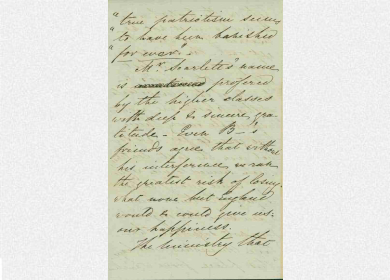 "true patriotism seems
"to have been banished
"for ever".
Mr. Scarlett's name
is profered
by the higher classes
with deep & sincere gra-
titude - Even B—'s
friends agree that without
his interference, we ran
the greatest risk of losing
what none but England
would or could give us -
our happiness.
The ministry that